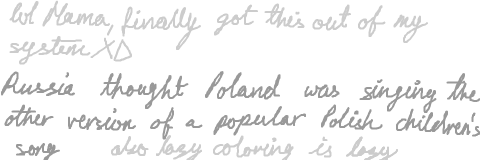 lol Mama, finally got this out of my
system XD
Russia thought Poland was singing the
other version of a popular Polish children's
song also lazy coloring is lazy